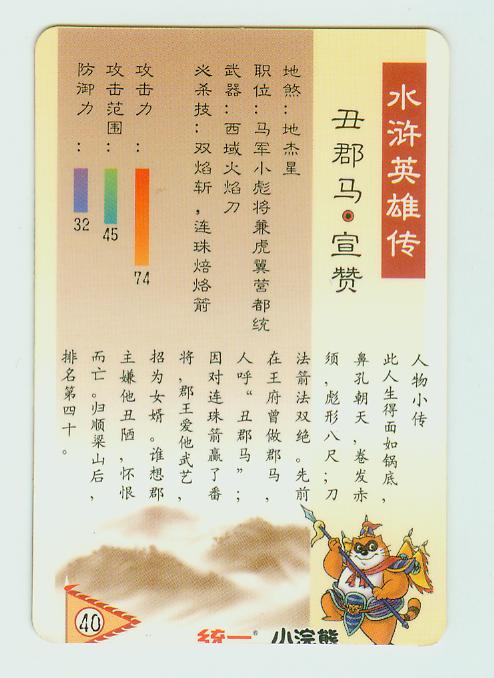 水浒英雄传
丑郡马·宣赞
地煞：地杰星
职位：马军小彪将兼虎翼营都统
武器：西域火焰刀
必杀技：双焰斩，连珠焙烙箭
攻击力：
74
攻击范围：
45
防御力：
32
人物小传
此人生得面如锅底，
鼻孔朝天，卷发赤
须，彪形八尺；刀
法箭法双绝。先前
在王府曾做郡马，
人呼“丑郡马”；
因对连珠箭赢了番
将，郡王爱他武艺，
招为女婿。谁想郡
主嫌他丑陋，怀恨
而亡。归顺梁山后，
排名第四十。
40
统一® 小浣熊